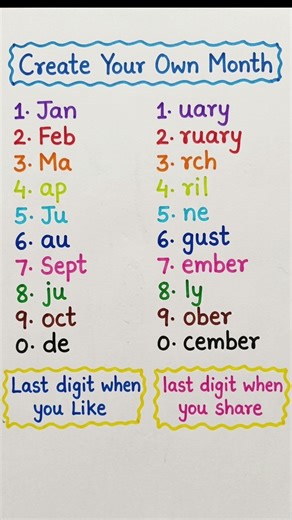 Create Your Own Month
1. Jan
2. Feb
3. Ma
4. ap
5. Ju
6. au
7. Sept
8. ju
9. oct
0. de
1. uary
2. ruary
3. rch
4. ril
5. ne
6. gust
7. ember
8. ly
9. ober
0. cember
Last digit when
you Like
last digit when
you share